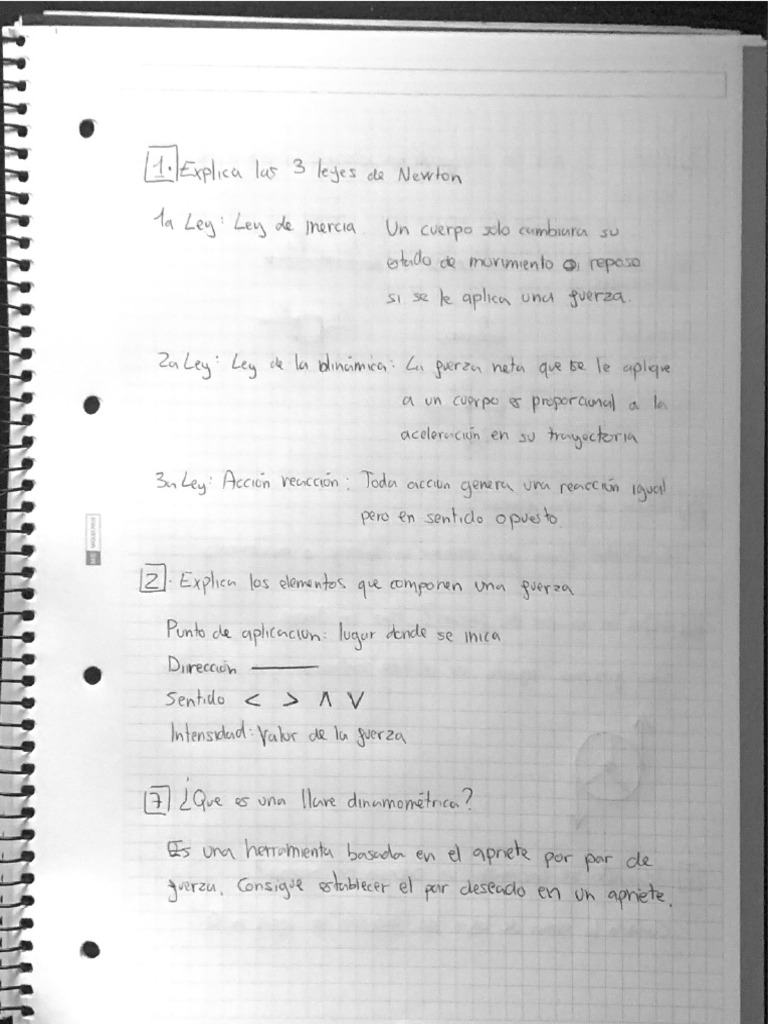 1. Explica las 3 leyes de Newton
1a Ley: Ley de inercia. Un cuerpo solo cambiara su
estado de movimiento o, reposo
si se le aplica una fuerza.
2a Ley: Ley de la dinámica: La fuerza neta que se le aplique
a un cuerpo es proporcional a la
aceleración en su trayectoria
3a Ley: Acción reacción: Toda accion genera una reacción igual
pero en sentido opuesto.
2. Explica los elementos que componen una fuerza
Punto de aplicacion: lugar donde se inica
Dirección
Sentido < > ∧ ∨
Intensidad: Valor de la fuerza
7 ¿Que es una llave dinamométrica?
Es una herramienta basada en el apriete por par de
fuerza. Consigue establecer el par deseado en un apriete.